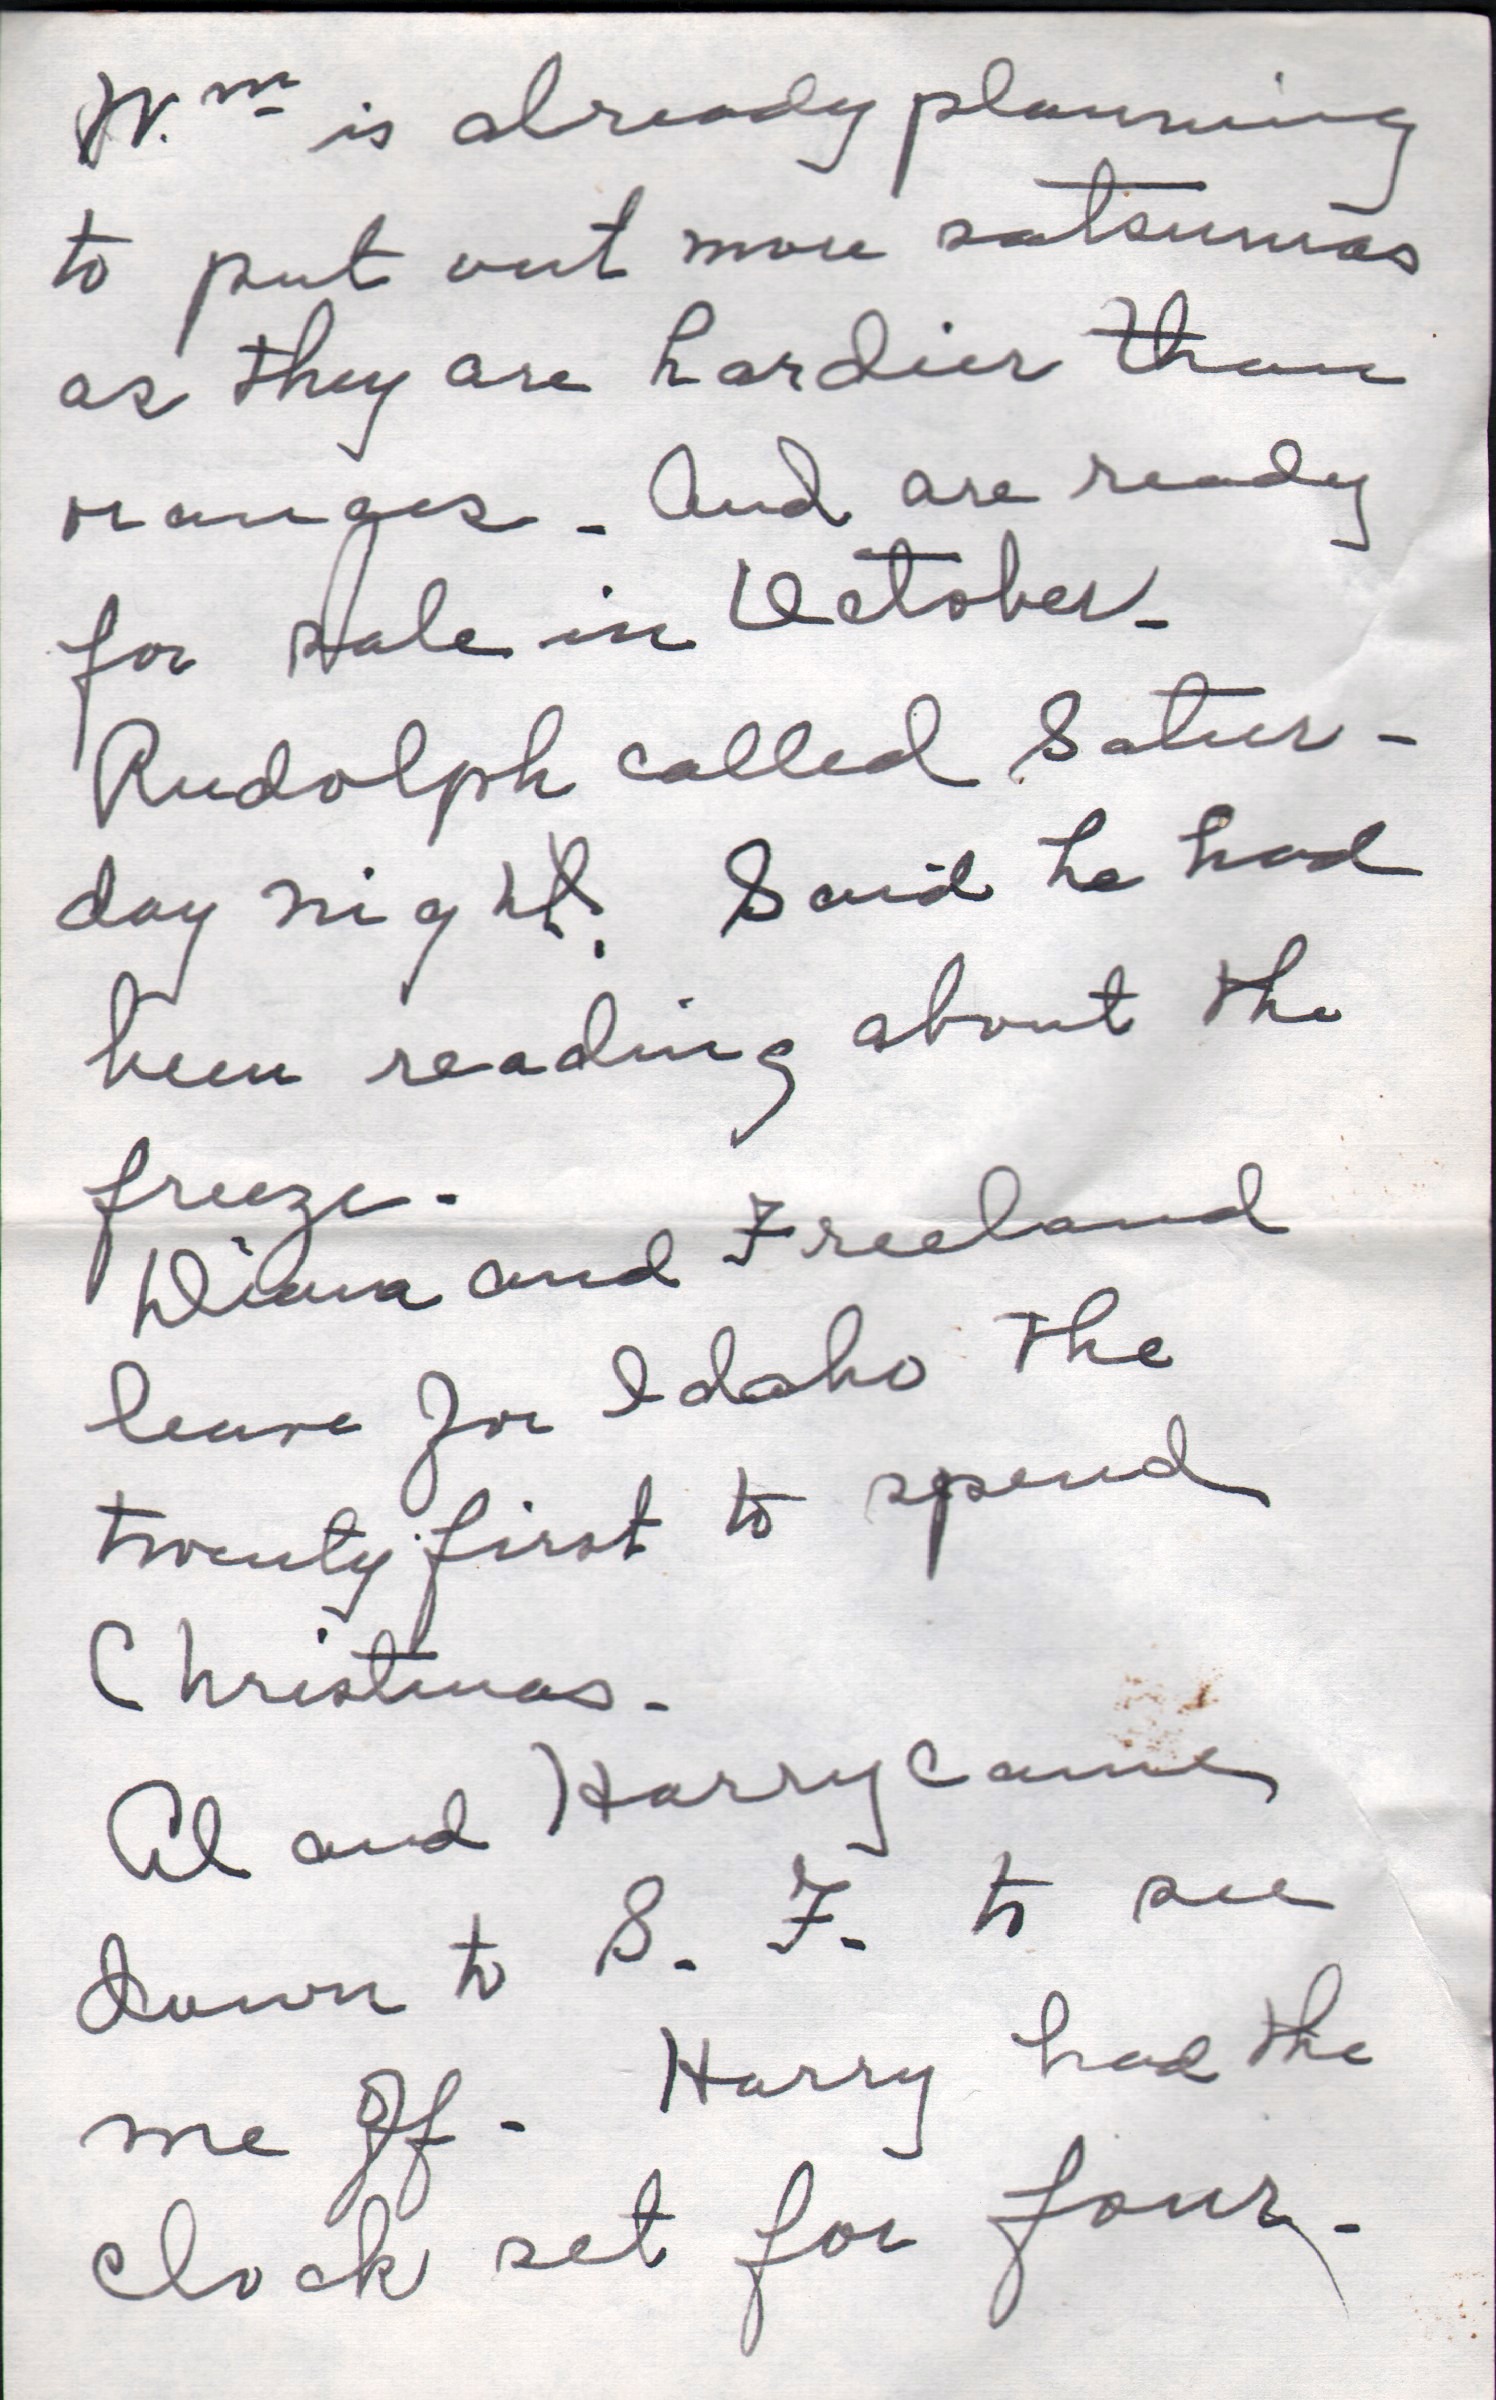 Wm is already planning
to put out more satsumas
as they are hardier than
oranges - And are ready
for sale in October -
Rudolph called Satur -
day night. Said he had
been reading about the
freeze -
Diana and Freeland
leave for Idaho the
twenty first to spend
Christmas -
Al and Harry came
down to S. F. to see
me off - Harry had the
clock set for four -